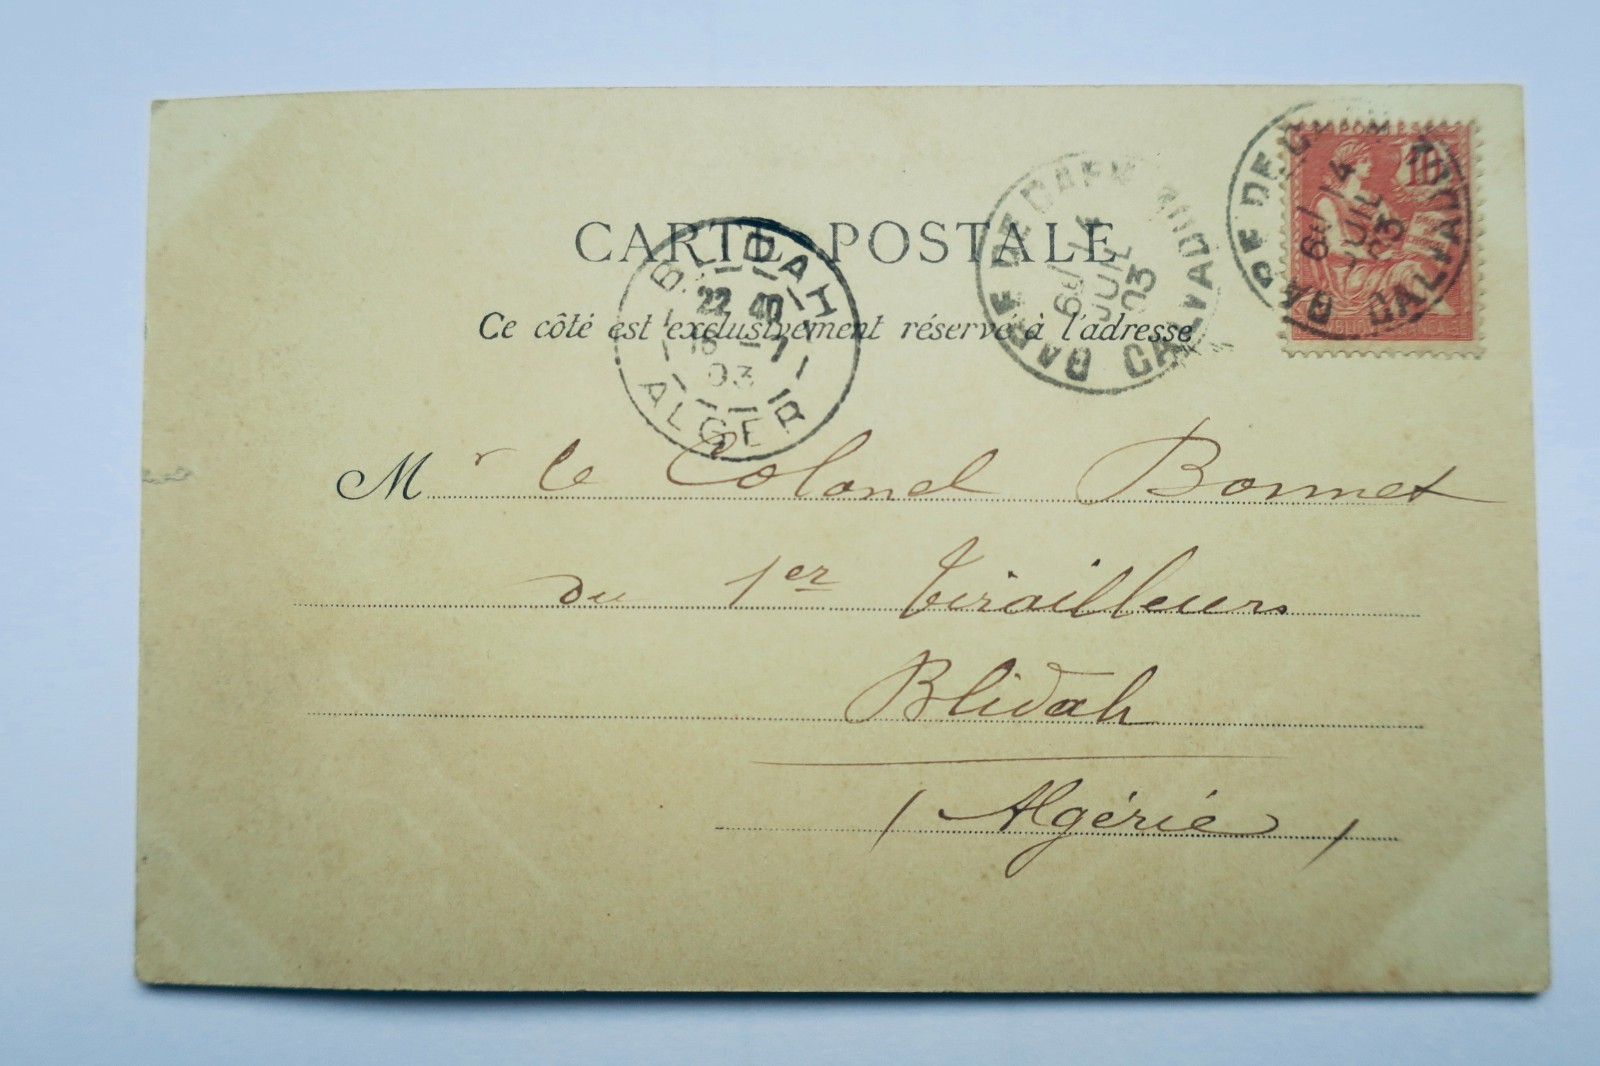 CARTE POSTALE
Ce côté est exclusivement réservé à l'adresse
BLIDAH
22 40
16 - 7
03
ALGER
GARE DE
6E/14
JUIL
03
CALVADOS
GARE DE
6E/14
JUIL
03
CALVADOS
10
POSTES
Mr le Colonel Bonnet
du 1er tirailleurs
Blidah
(Algérie)